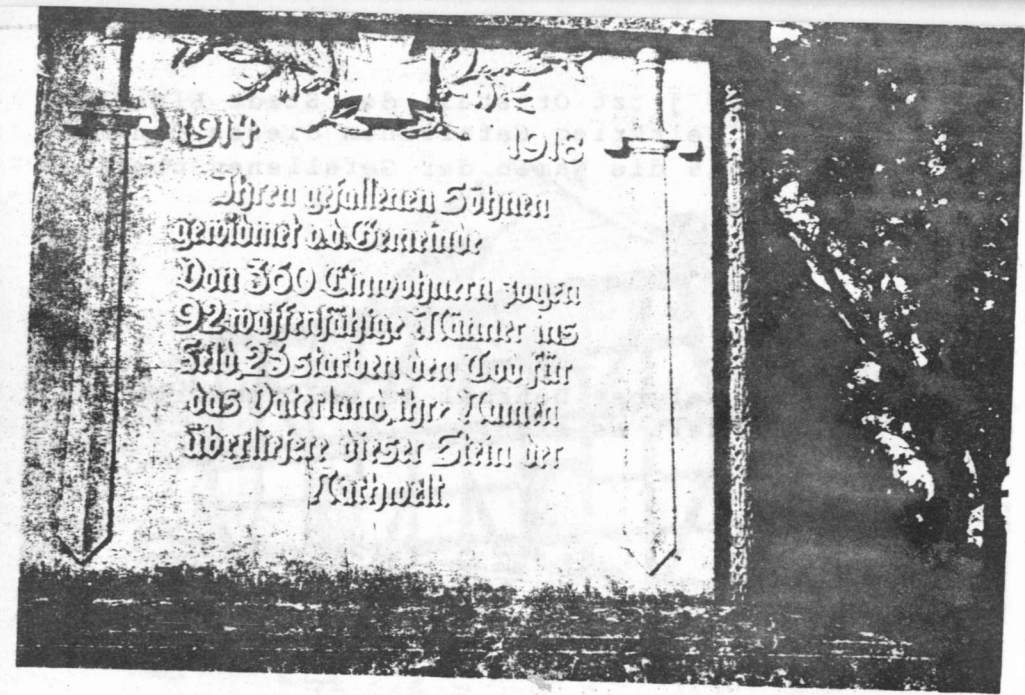 1914 1918
Ihren gefallenen Söhnen
gewidmet v.d. Gemeinde
Von 360 Einwohnern zogen
92 waffenfähige Männer ins
Feld, 23 starben den Tod für
das Vaterland, ihre Namen
überliefere dieser Stein der
Nachwelt.